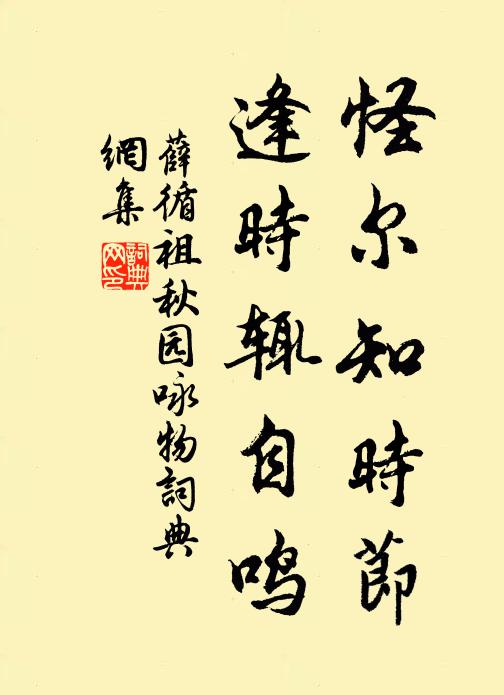 怪尔知時節
逢時輙自鸣
薛循祖秋园咏物詞典
網集
詞典
网印